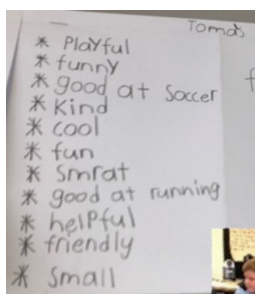 Tomás
* Playful
* funny
* good at Soccer
* Kind
* cool
* fun
* Smrat
* good at running
* helpful
* friendly
* Small